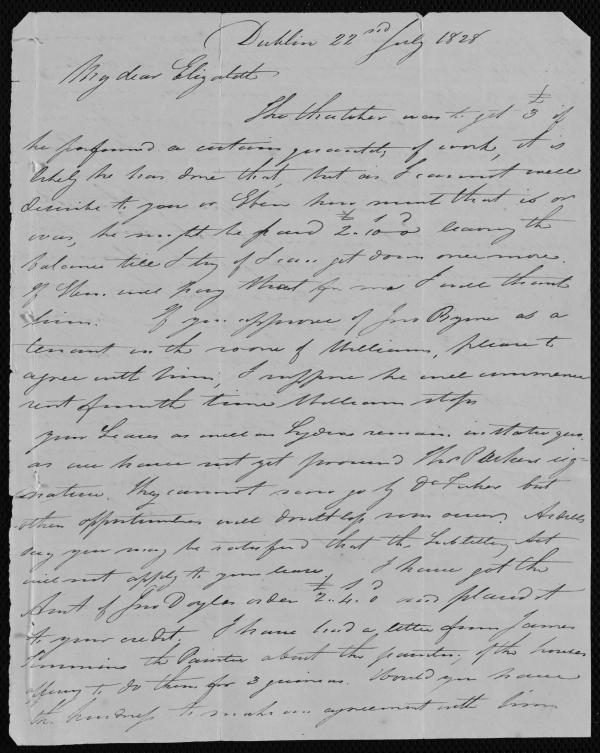 Dublin 22nd July 1828
My dear Elizabeth
The thatcher was to get £3 if
he performed a certain quantity of work, it is
likely he has done that, but as I cannot well
describe to you or Eben how much that is or
was, he might be paid £2.10.0 leaving the
balance till I try if I can get down once more.
If Eben will pay that for me I will thank
him. If you approve of Jno Byrne as a
tenant in the room of Williams, please to
agree with him, I suppose he will commence
rent from the time William stops
your Leases as well as Lydias remain in statu quo
as we have not yet procured Thos Parkers sig-
nature. They cannot now go by Dr Fisher but
other opportunities will doubtless soon occur.
say you may be satisfied that the Subletting Act
will not apply to your leases I have got the
Amt of Jno Doyles order £2.4.0 and placed it
to your credit. I have had a letter from James
the Painter about the painting of the houses
offering to do them for 3 guineas. Would you have
the kindness to make an agreement with him